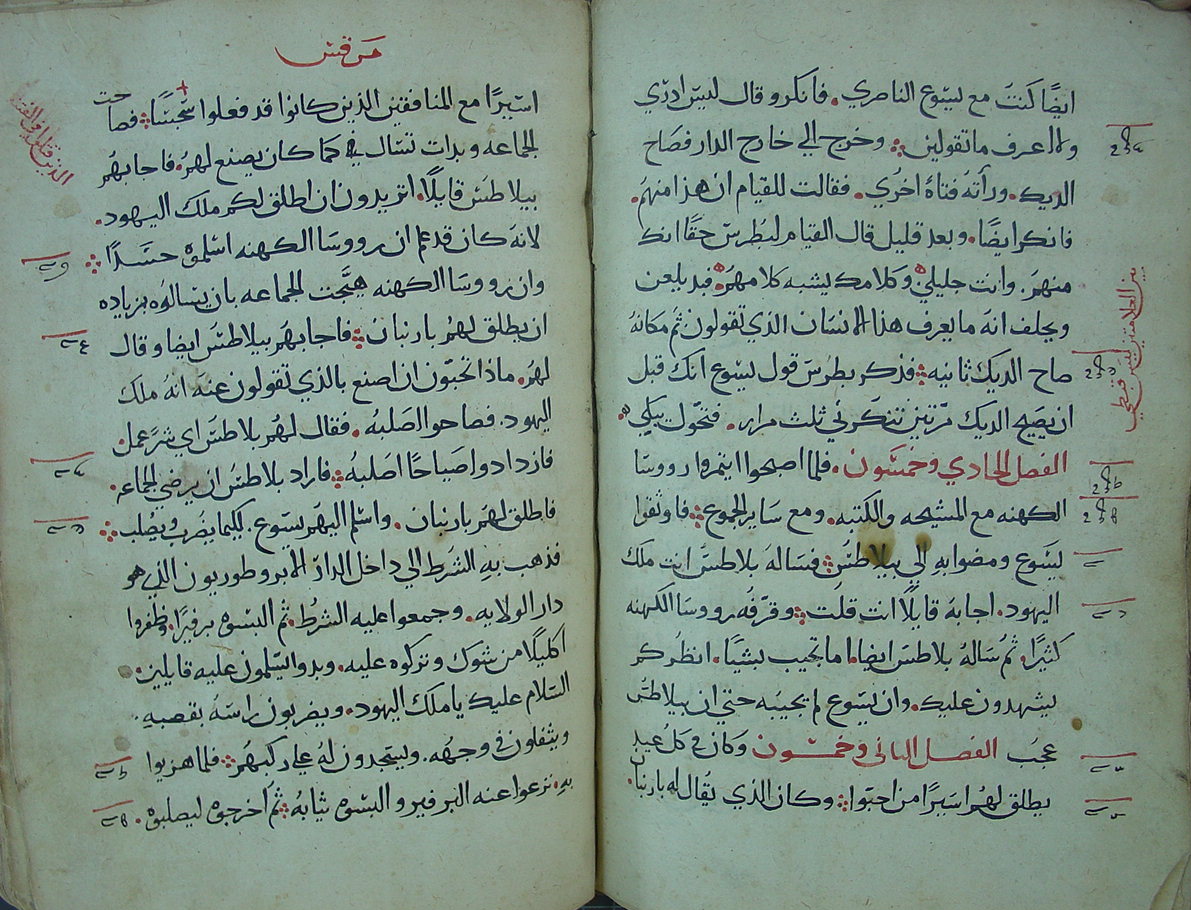 ايضًا كنت مع يسوع الناصري. فانكر وقال ليس ادري
ولا اعرف ما تقولين ܀ وخرج الي خارج الدار فصاح
الديك. وراته فتاة اخري. فقالت للقيام ان هذا منهم.
فانكر ايضًا. وبعد قليل قال القيام لبطرس حقًا انك
منهم. وانت جليلي وكلامك يشبه كلامهم فبد يلعن
ويحلف انه ما يعرف هذا الانسان الذي تقولون ثم مكانه
صاح الديك ثانيه ܀ فذكر بطرس قول يسوع انك قبل
ان يصيح الديك مرتين تنكرني ثلث مرار. فتحول يبكي
الفصل الحادي وخمسون. فلما اصبحوا ايتمروا رووسا
الكهنه مع المشيخه والكتبه. ومع ساير الجموع ܀ فاوثقوا
يسوع ومضوا به الي بيلاطس ܀ فساله بلاطس انت ملك
اليهود. اجابه قايلًا انت قلت ܀ وقرفه رووسا الكهنه
كثيرًا. ثم ساله بلاطس ايضا. اما تجيب بشيًا. انظر كم
يشهدون عليك. وان يسوع لم يجيبه حتي ان بيلاطس
عجب الفصل الثاني وخمسون وكان في كل عيد
يطلق لهم اسيرًا من احبوا ܀ وكان الذي يقال له باربنان
مرقس
اسيرًا مع المنافقين الذين كانوا قد فعلوا سجسًا ܀ فصاحت
الجماعه وبدات تسال في كما كان يصنع لهم. فاجابهم
بيلاطس قايلًا. اتريدون ان اطلق لكم ملك اليهود.
لانه كان قد علم ان رووسا الكهنه اسلموه حسدًا ܀
وان رووسا الكهنه هيجت الجماعه بان يسالوه بزياده
ان يطلق لهم باربنان ܀ فاجابهم بيلاطس ايضا وقال
لهم. ماذا تحبون ان اصنع بالذي تقولون عنه انه ملك
اليهود. فصاحوا اصلبه. فقال لهم بلاطس اي شر عمل
فازدادوا صياحًا اصلبه ܀ فاراد بلاطس ان يرضي الجماعه.
فاطلق لهم باربنان. واسلم اليهم يسوع. لكيما يضرب ويصلب ܀
فذهب به الشرط الي داخل الدار الابروطوريون الذي هو
دار الولايه. وجمعوا عليه الشرط. ثم البسوه برفيرًا. وظفروا
اكليلًا من شوك وتركوه عليه. وبدوا يسلمون عليه قايلين.
السلام عليك يا ملك اليهود. ويضربون راسه بقصبه.
ويتفلون في وجهه. ويسجدون له علي ركبهم ܀ فلما هزيوا
به. نزعوا عنه البرفير والبسوه ثيابه ܀ ثم اخرجوه ليصلبوه.